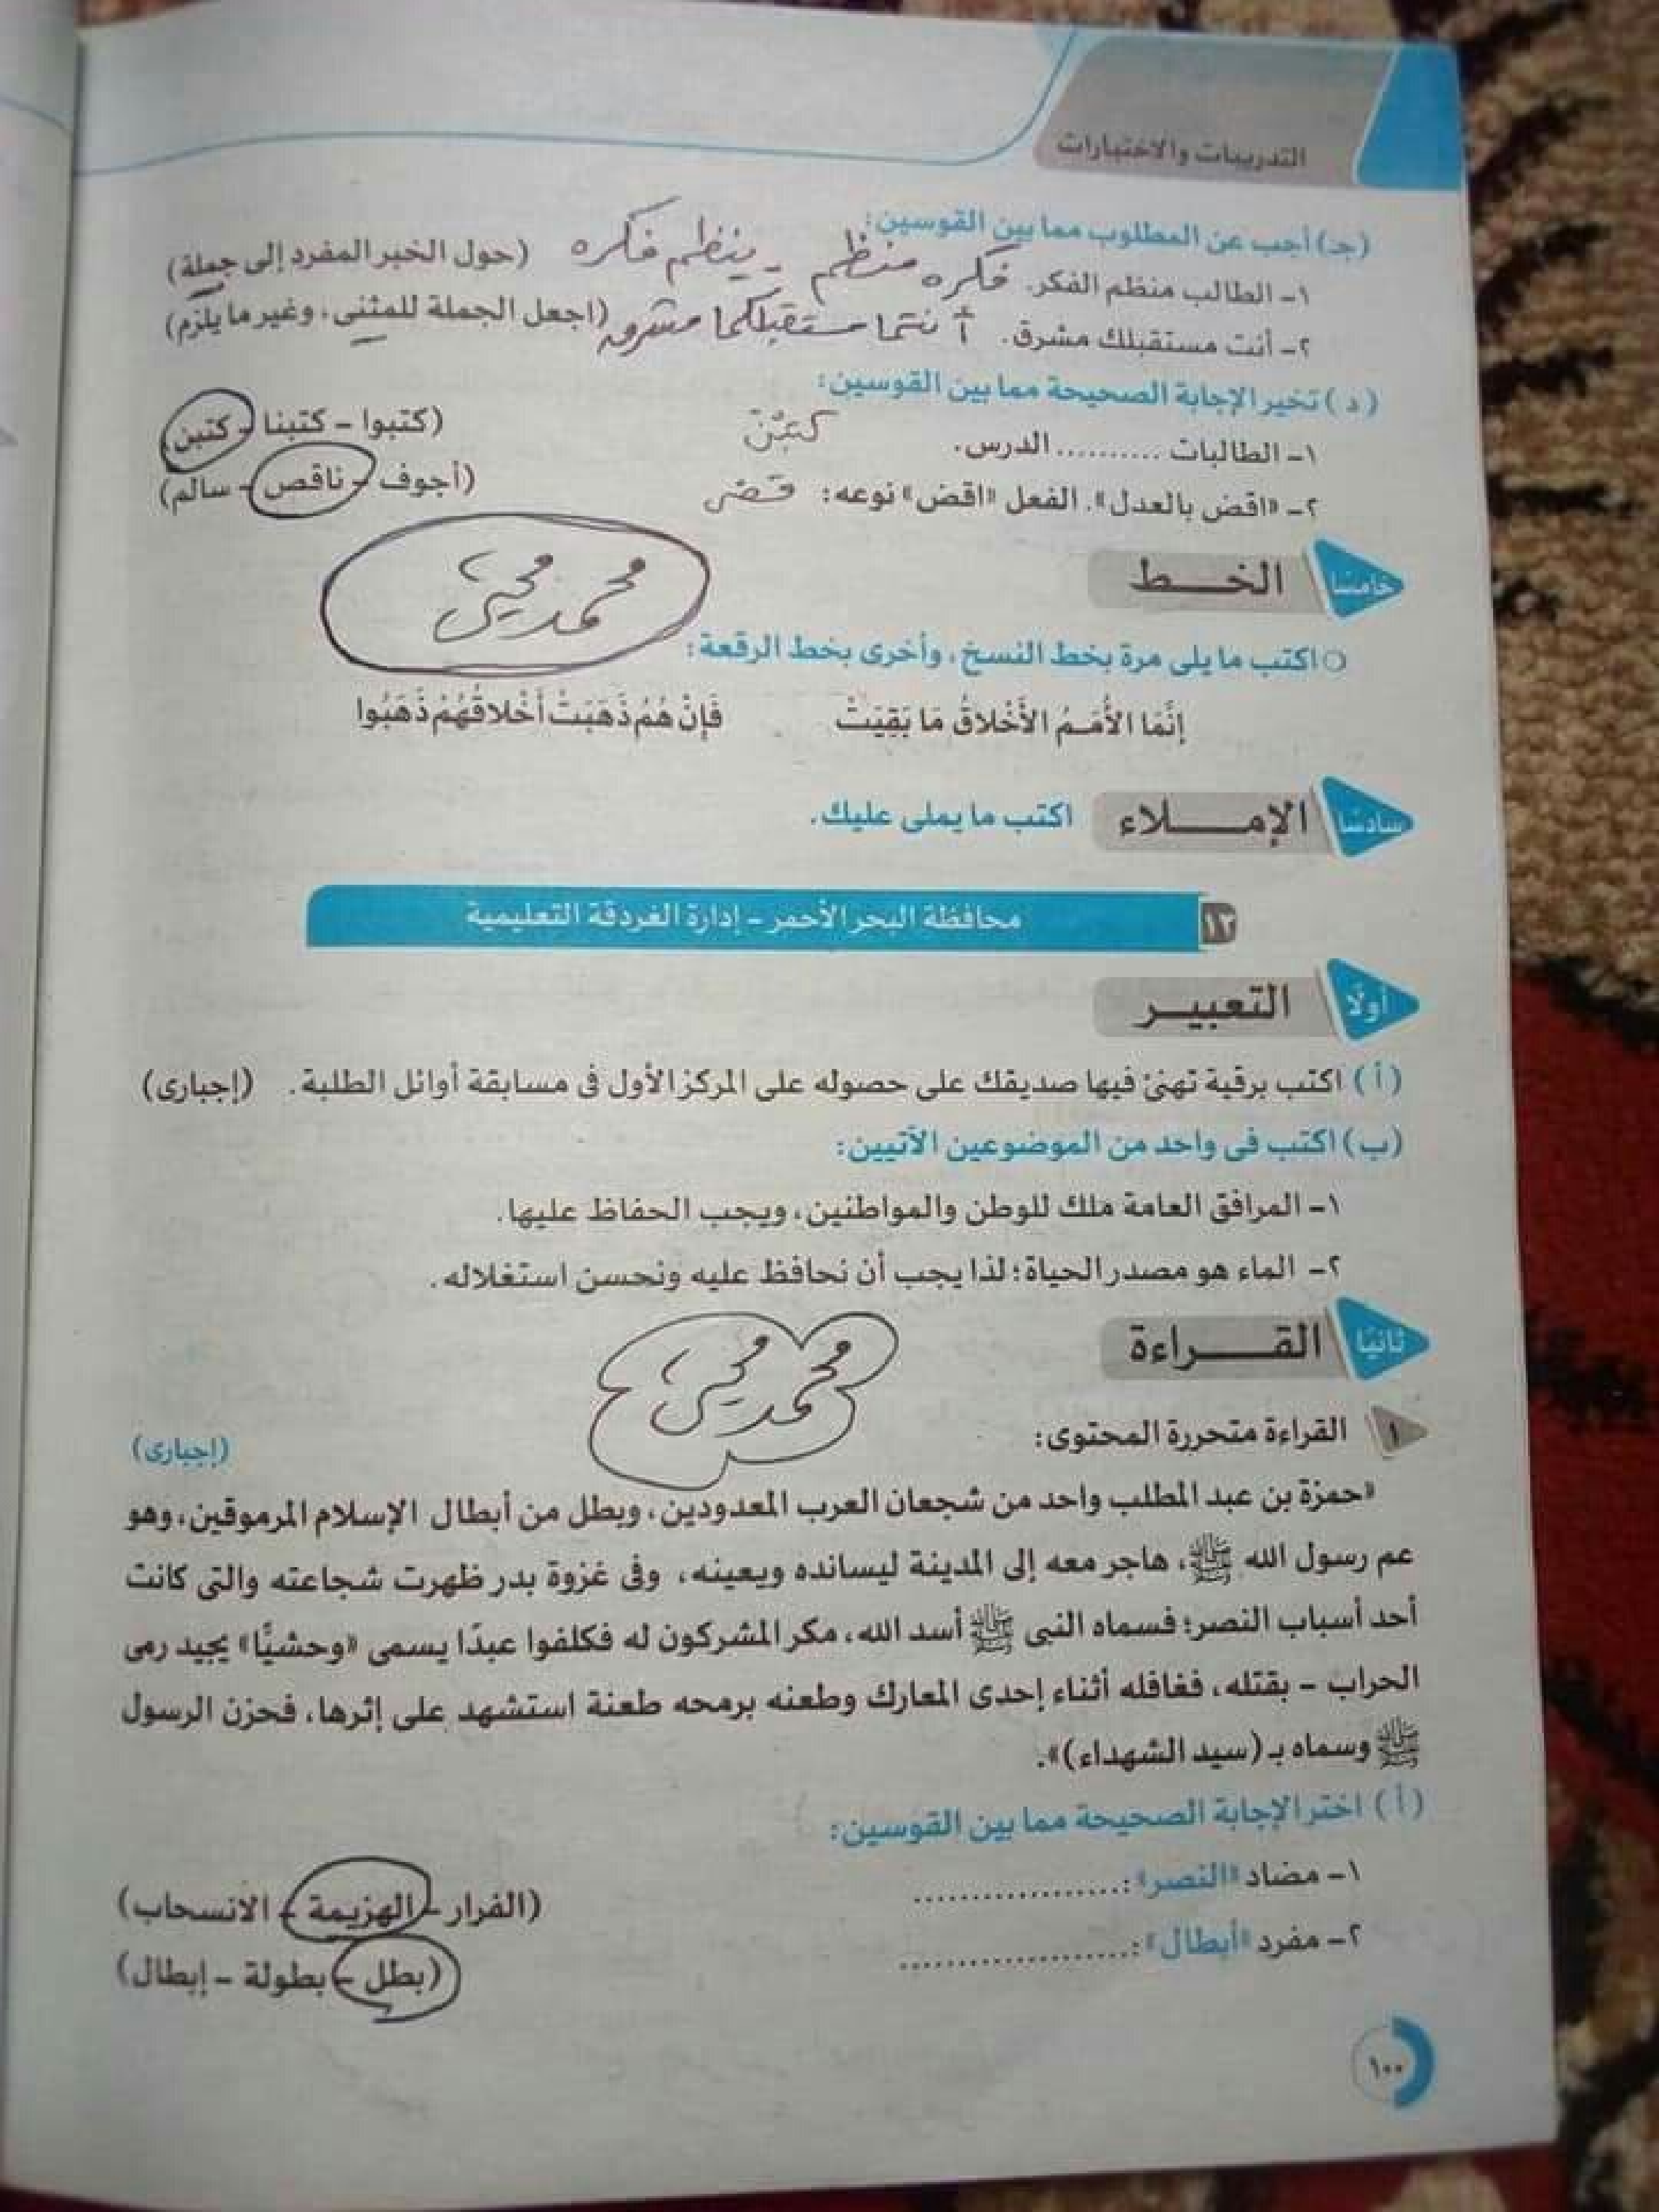 التدريبات والاختبارات
(جـ) أجب عن المطلوب مما بين القوسين:
١- الطالب منظم الفكر. فكره منظم - ينظم فكره (حول الخبر المفرد إلى جملة)
٢- أنت مستقبلك مشرق. أنتما مستقبلكما مشرق (اجعل الجملة للمثنى، وغير ما يلزم)
(د) تخير الإجابة الصحيحة مما بين القوسين:
١- الطالبات .......... الدرس. كتبن (كتبوا - كتبنا - كتبن)
٢- «اقض بالعدل». الفعل «اقض» نوعه: قضى (أجوف - ناقص - سالم)
خامسًا الخـــط
محمد محيى
اكتب ما يلى مرة بخط النسخ، وأخرى بخط الرقعة:
إِنَّمَا الأُمَـمُ الأَخْلاقُ مَا بَقِيَتْ فَإِنْ هُمُ ذَهَبَتْ أَخْلاقُهُمْ ذَهَبُوا
سادسًا الإمـــــلاء اكتب ما يملى عليك.
١٣ محافظة البحر الأحمر - إدارة الغردقة التعليمية
أولًا التعبيـــر
(أ) اكتب برقية تهنئ فيها صديقك على حصوله على المركز الأول فى مسابقة أوائل الطلبة. (إجبارى)
(ب) اكتب فى واحد من الموضوعين الآتيين:
١- المرافق العامة ملك للوطن والمواطنين، ويجب الحفاظ عليها.
٢- الماء هو مصدر الحياة؛ لذا يجب أن نحافظ عليه ونحسن استغلاله.
ثانيًا القـــــراءة
محمد محيى
١ القراءة متحررة المحتوى: (إجبارى)
«حمزة بن عبد المطلب واحد من شجعان العرب المعدودين، وبطل من أبطال الإسلام المرموقين، وهو
عم رسول الله ﷺ، هاجر معه إلى المدينة ليسانده ويعينه، وفى غزوة بدر ظهرت شجاعته والتى كانت
أحد أسباب النصر؛ فسماه النبى ﷺ أسد الله، مكر المشركون له فكلفوا عبدًا يسمى «وحشيًّا» يجيد رمى
الحراب - بقتله، فغافله أثناء إحدى المعارك وطعنه برمحه طعنة استشهد على إثرها، فحزن الرسول
ﷺ وسماه بـ (سيد الشهداء)».
(أ) اختر الإجابة الصحيحة مما بين القوسين:
١- مضاد «النصر»: .................... (الفرار - الهزيمة - الانسحاب)
٢- مفرد «أبطال»: .................... (بطل - بطولة - إبطال)
١٠٠